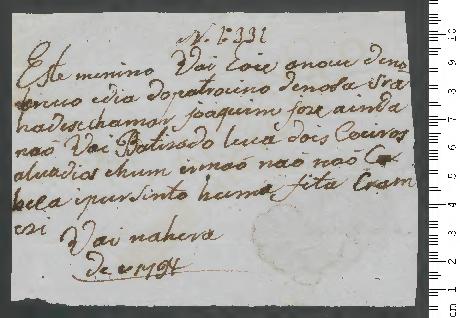 N. 1331
Este menino Vai hoie anove deno
vembro edia dopatrocino denosa Sra
hadesechamar joaquim joze ainda
naõ Vai Batizado leva dois Coeiros
aluadios ehum irmaõ naõ naõ
ipursinto huma fita Cram
ezi
Vai nahera
de 1794